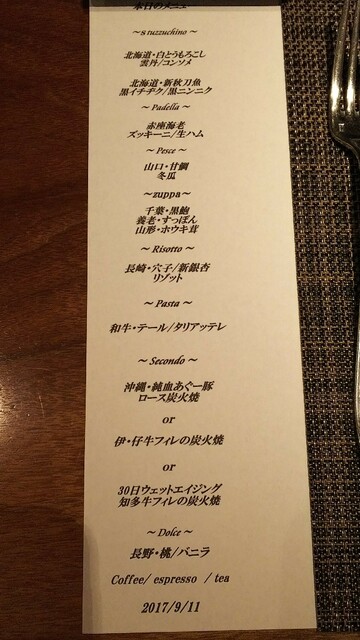 本日のメニュー
～stuzzuchino～
北海道・白とうもろこし
雲丹/コンソメ
北海道・新秋刀魚
黒イチヂク/黒ニンニク
～Padella～
赤座海老
ズッキーニ/生ハム
～Pesce～
山口・甘鯛
冬瓜
～zuppa～
千葉・黒鮑
養老・すっぽん
山形・ホウキ茸
～Risotto～
長崎・穴子/新銀杏
リゾット
～Pasta～
和牛・テール/タリアッテレ
～Secondo～
沖縄・純血あぐー豚
ロース炭火焼
or
伊・仔牛フィレの炭火焼
or
30日ウェットエイジング
知多牛フィレの炭火焼
～Dolce～
長野・桃/バニラ
Coffee/ espresso / tea
2017/9/11